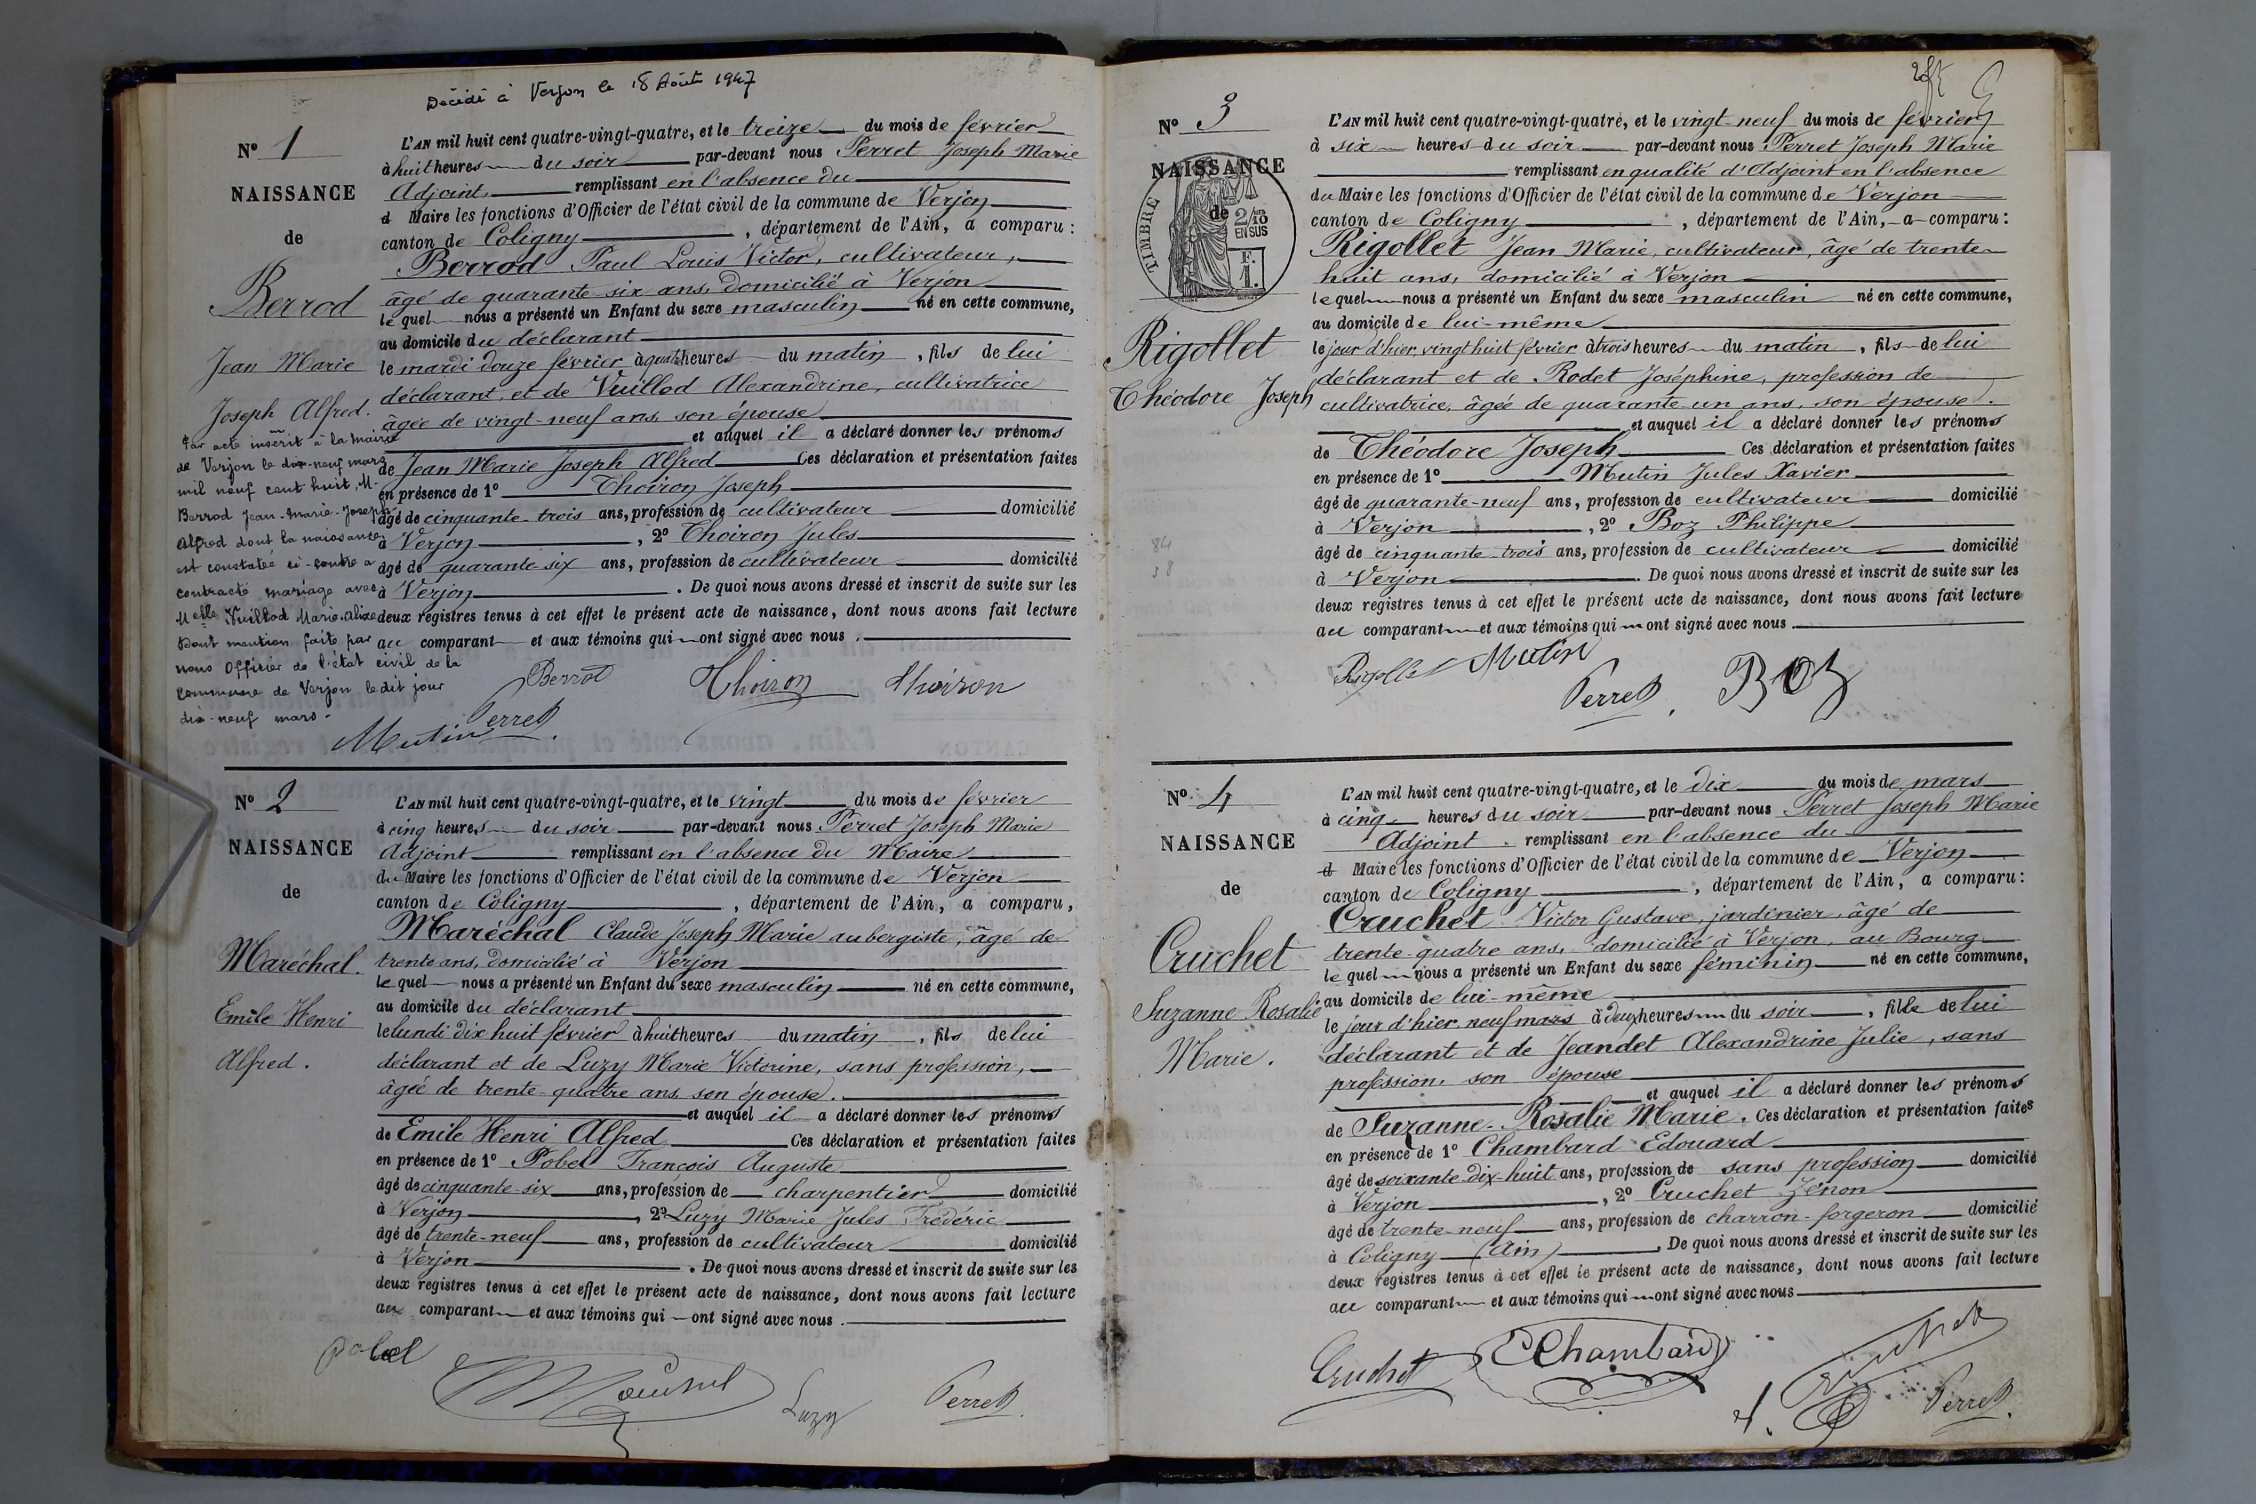 Décédé à Verjon le 18 Août 1947
N° 1
NAISSANCE
de
Berrod
Jean Marie
Joseph Alfred.
Par acte inscrit à la mairie
de Verjon le dix-neuf mars
mil neuf cent huit, M.
Berrod Jean-Marie-Joseph
Alfred dont la naissance
est constatée ci-contre a
contracté mariage avec
Melle Vuillod Marie-Alixe
Dont mention faite par
nous Officier de l'état civil de la
commune de Verjon ledit jour
dix-neuf mars.
L'AN mil huit cent quatre-vingt-quatre, et le treize du mois de février
à huit heures du soir par-devant nous Perret Joseph Marie
Adjoint, remplissant en l'absence du
d Maire les fonctions d'Officier de l'état civil de la commune de Verjon
canton de Coligny, département de l'Ain, a comparu :
Berrod Paul Louis Victor, cultivateur,
âgé de quarante-six ans, domicilié à Verjon
le quel nous a présenté un Enfant du sexe masculin né en cette commune,
au domicile du déclarant
le mardi douze février à quatre heures du matin, fils de lui
déclarant, et de Vuillod Alexandrine, cultivatrice
âgée de vingt-neuf ans, son épouse
et auquel il a déclaré donner les prénoms
de Jean Marie Joseph Alfred Ces déclaration et présentation faites
en présence de 1° Thoiron Joseph
âgé de cinquante-trois ans, profession de cultivateur domicilié
à Verjon, 2° Thoiron Jules
âgé de quarante-six ans, profession de cultivateur domicilié
à Verjon. De quoi nous avons dressé et inscrit de suite sur les
deux registres tenus à cet effet le présent acte de naissance, dont nous avons fait lecture
au comparant et aux témoins qui ont signé avec nous.
Berrod Thoiron Thoiron
Mutin Perret
N° 2
NAISSANCE
de
Maréchal.
Emile Henri
Alfred.
L'AN mil huit cent quatre-vingt-quatre, et le vingt du mois de février
à cinq heures du soir par-devant nous Perret Joseph Marie
Adjoint remplissant en l'absence du Maire
du Maire les fonctions d'Officier de l'état civil de la commune de Verjon
canton de Coligny, département de l'Ain, a comparu,
Maréchal Claude Joseph Marie aubergiste, âgé de
trente ans, domicilié à Verjon
le quel nous a présenté un Enfant du sexe masculin né en cette commune,
au domicile du déclarant
le lundi dix huit février à huit heures du matin, fils de lui
déclarant et de Luzy Marie Victorine, sans profession,
âgée de trente-quatre ans, son épouse.
et auquel il a déclaré donner les prénoms
de Emile Henri Alfred Ces déclaration et présentation faites
en présence de 1° Pobel François Auguste
âgé de cinquante-six ans, profession de charpentier domicilié
à Verjon, 2° Luzy Marie Jules Frédéric
âgé de trente-neuf ans, profession de cultivateur domicilié
à Verjon. De quoi nous avons dressé et inscrit de suite sur les
deux registres tenus à cet effet le présent acte de naissance, dont nous avons fait lecture
au comparant et aux témoins qui ont signé avec nous.
Pobel
Luzy Perret
N° 3
NAISSANCE
de
TIMBRE
2/10 EN SUS
F. 1.
Rigollet
Théodore Joseph
84
38
L'AN mil huit cent quatre-vingt-quatre, et le vingt-neuf du mois de février
à six heures du soir par-devant nous Perret Joseph Marie
remplissant en qualité d'Adjoint en l'absence
du Maire les fonctions d'Officier de l'état civil de la commune de Verjon
canton de Coligny, département de l'Ain, a comparu :
Rigollet Jean Marie, cultivateur, âgé de trente-
huit ans, domicilié à Verjon
le quel nous a présenté un Enfant du sexe masculin né en cette commune,
au domicile de lui-même
le jour d'hier, vingt huit février à trois heures du matin, fils de lui
déclarant et de Rodet Joséphine, profession de
cultivatrice, âgée de quarante-un ans, son épouse.
et auquel il a déclaré donner les prénoms
de Théodore Joseph Ces déclaration et présentation faites
en présence de 1° Mutin Jules Xavier
âgé de quarante-neuf ans, profession de cultivateur domicilié
à Verjon, 2° Boz Philippe
âgé de cinquante-trois ans, profession de cultivateur domicilié
à Verjon. De quoi nous avons dressé et inscrit de suite sur les
deux registres tenus à cet effet le présent acte de naissance, dont nous avons fait lecture
au comparant et aux témoins qui ont signé avec nous.
Rigollet Mutin
Perret. Boz
N° 4
NAISSANCE
de
Cruchet
Suzanne Rosalie
Marie.
L'AN mil huit cent quatre-vingt-quatre, et le dix du mois de mars
à cinq heures du soir par-devant nous Perret Joseph Marie
Adjoint. remplissant en l'absence du
d Maire les fonctions d'Officier de l'état civil de la commune de Verjon
canton de Coligny, département de l'Ain, a comparu :
Cruchet Victor Gustave, jardinier, âgé de
trente-quatre ans, domicilié à Verjon, au Bourg
le quel nous a présenté un Enfant du sexe féminin né en cette commune,
au domicile de lui-même
le jour d'hier neuf mars à deux heures du soir, fille de lui
déclarant et de Jeandet Alexandrine Julie, sans
profession, son épouse
et auquel il a déclaré donner les prénoms
de Suzanne-Rosalie Marie. Ces déclaration et présentation faites
en présence de 1° Chambard Edouard
âgé de soixante-dix-huit ans, profession de sans profession domicilié
à Verjon, 2° Cruchet Zénon
âgé de trente-neuf ans, profession de charron-forgeron domicilié
à Coligny (Ain). De quoi nous avons dressé et inscrit de suite sur les
deux registres tenus à cet effet le présent acte de naissance, dont nous avons fait lecture
au comparant et aux témoins qui ont signé avec nous
Cruchet Chambard
Perret.